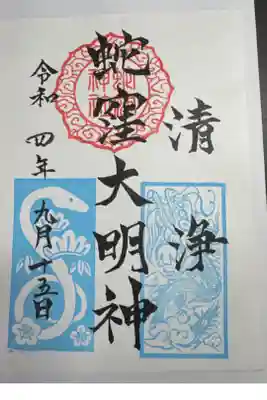 清浄
蛇窪大明神
令和四年九月十五日